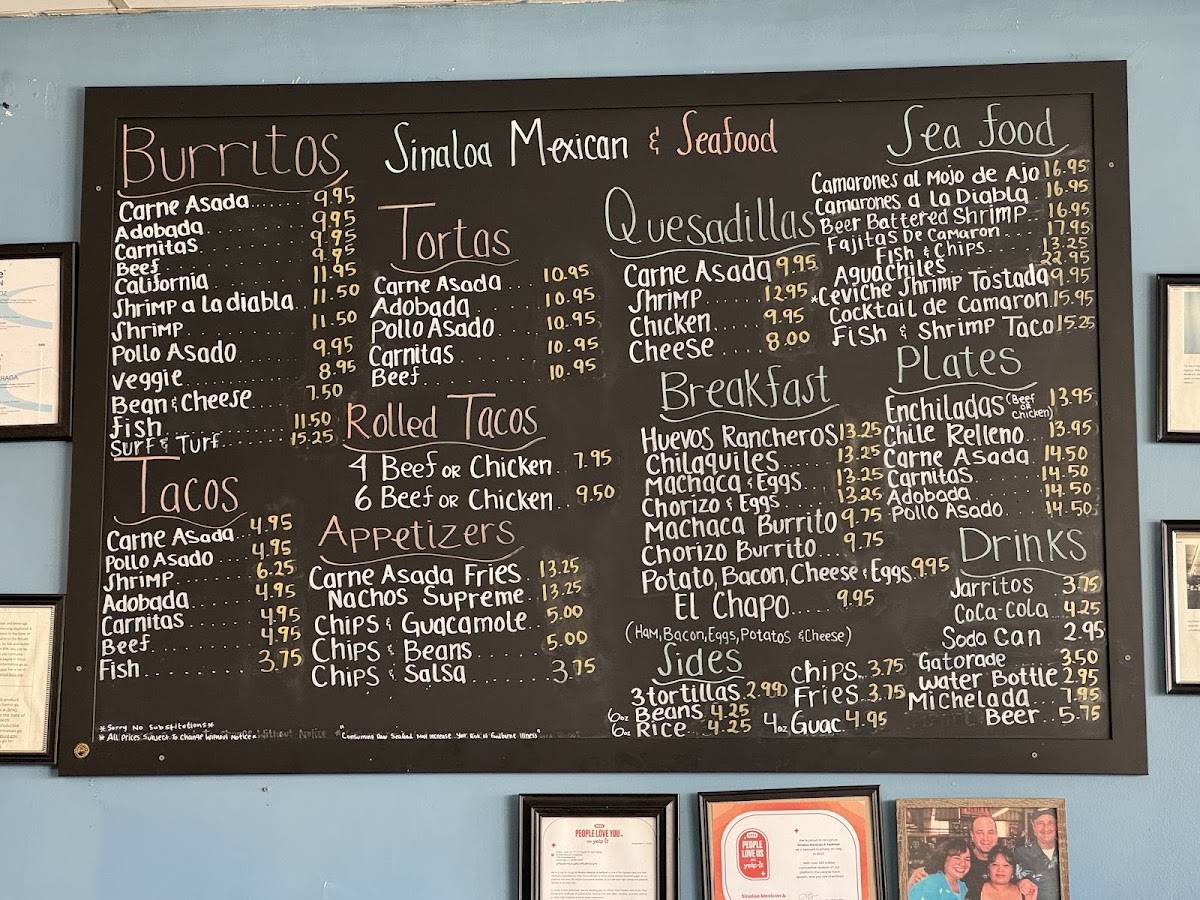 Sinaloa Mexican & Seafood
Burritos
Carne Asada....... 9.95
Adobada 9.95
Carnitas 9.95
Beef 9.95
California 11.95
Shrimp a La diabla 11.50
Shrimp 11.50
Pollo Asado 9.95
Veggie 8.95
Bean & Cheese 7.50
fish 11.50
Surf & Turf 15.25
Tacos
Carne Asada... 4.95
Pollo Asado 4.95
Shrimp 6.25
Adobada 4.95
Carnitas 4.95
Beef 4.95
Fish 3.75
Tortas
Carne Asada 10.95
Adobada 10.95
Pollo Asado 10.95
Carnitas 10.95
Beef 10.95
Rolled Tacos
4 Beef or Chicken.. 7.95
6 Beef or Chicken 9.50
Appetizers
Carne Asada Fries 13.25
Nachos Supreme 13.25
Chips & Guacamole 5.00
Chips & Beans 5.00
Chips & Salsa 3.75
Quesadillas
Carne Asada 9.95
Shrimp 12.95
Chicken 9.95
Cheese 8.00
Breakfast
Huevos Rancheros 13.25
Chilaquiles 13.25
Machaca & Eggs 13.25
Chorizo & Eggs 13.25
Machaca Burrito 9.75
Chorizo Burrito... 9.75
Potato, Bacon, Cheese & Eggs 9.95
El Chapo..... 9.95
(Ham, Bacon, Eggs, Potatos & Cheese)
Sides
3 tortillas. 2.99
6oz Beans 4.25
6oz Rice 4.25
Chips... 3.75
Fries. 3.75
4oz Guac. 4.95
Sea food
Camarones al Mojo de Ajo 16.95
Camarones a La Diabla 16.95
Beer Battered Shrimp 16.95
Fajitas De Camaron 17.95
Fish & Chips 13.25
Aguachiles 22.95
*Ceviche Shrimp Tostada 9.95
Cocktail de Camaron 15.95
Fish & Shrimp Taco 15.25
Plates
Enchiladas (Beef or Chicken) 13.95
Chile Relleno 13.95
Carne Asada 14.50
Carnitas 14.50
Adobada 14.50
Pollo Asado 14.50
Drinks
Jarritos 3.75
Coca-cola 4.25
Soda Can 2.95
Gatorade 3.50
Water Bottle 2.95
Michelada 7.95
Beer 5.75
* Sorry No Substitutions *
* All Prices Subject To Change Without Notice *
PEOPLE LOVE YOU
yelp
PEOPLE
LOVE US
yelp